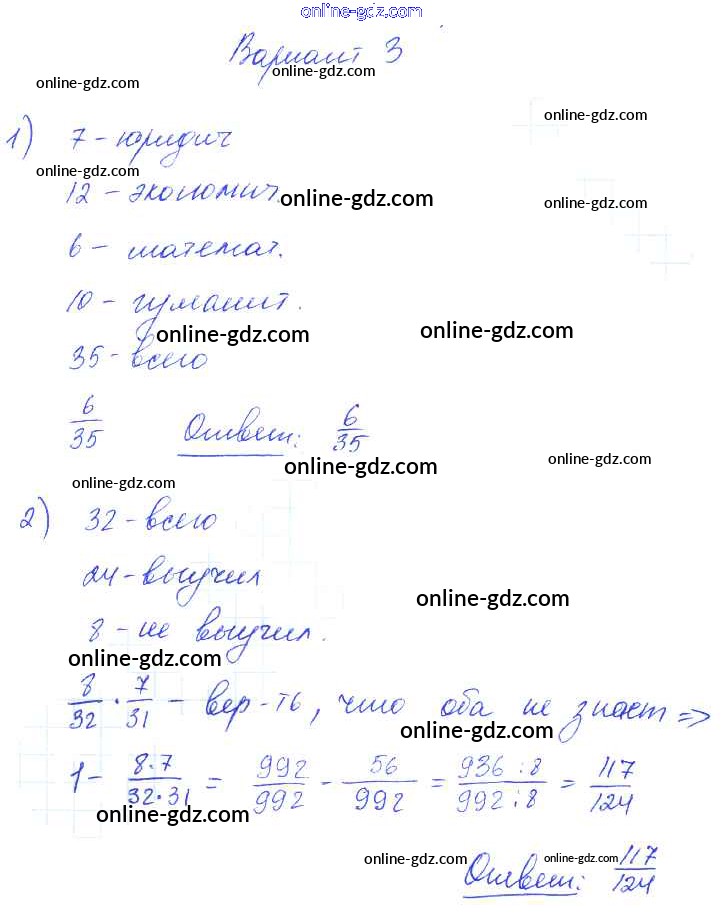 online-gdz.com
Вариант 3
online-gdz.com
online-gdz.com
online-gdz.com
1) 7 - юридич
online-gdz.com
12 - экономич.
online-gdz.com
online-gdz.com
6 - математ.
10 - гуманит.
online-gdz.com
online-gdz.com
35 - всего
6/35 Ответ: 6/35
online-gdz.com
online-gdz.com
online-gdz.com
2) 32 - всего
24 - выучил
online-gdz.com
8 - не выучил.
online-gdz.com
8/32 · 7/31 - вер-ть, что оба не знает =>
online-gdz.com
1 - 8·7/32·31 = 992/992 - 56/992 = 936:8/992:8 = 117/124
online-gdz.com
online-gdz.com
online-gdz.com
Ответ: 117/124